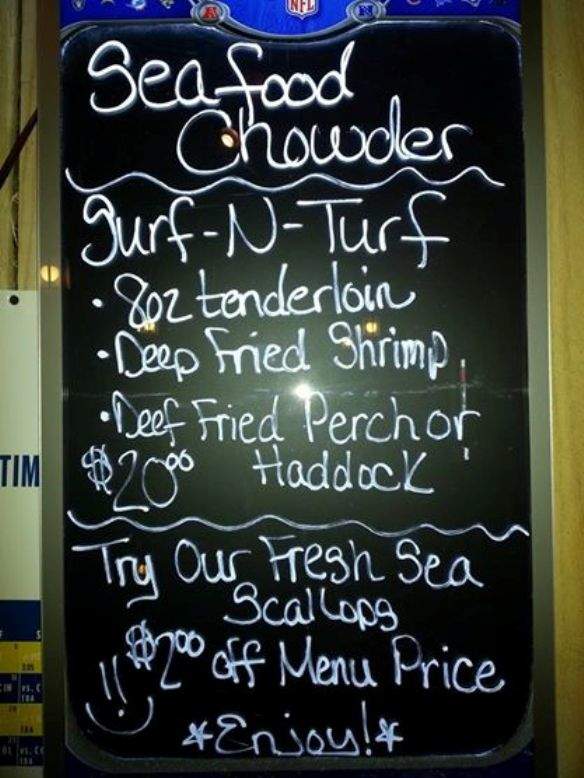 NFL
Seafood
Chowder
Surf-N-Turf
• 8oz tenderloin
• Deep Fried Shrimp
• Deef Fried Perch or
$20.00 Haddock
Try Our Fresh Sea
Scallops
$2.00 off Menu Price
*Enjoy!*
TIM